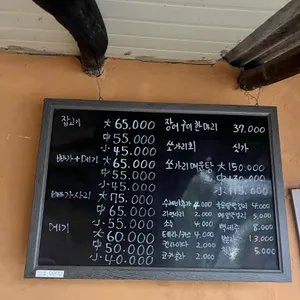 잡고기 大 65.000
中 55.000
小 45.000
빠가+메기 大 65.000
中 55.000
小 45.000
빠가사리 大 75.000
中 65.000
小 55.000
메기 大 60.000
中 50.000
小 40.000
장어구이 한마리 37.000
쏘가리회 싯가
쏘가리매운탕 大 150.000
中 130.000
小 115.000
수제비추가 2.000
라면사리 2.000
소주 4.000
테라/카스 4.000
사이다 2.000
공기밥 2.000
4.000
5.000
8.000
13.000
5.000